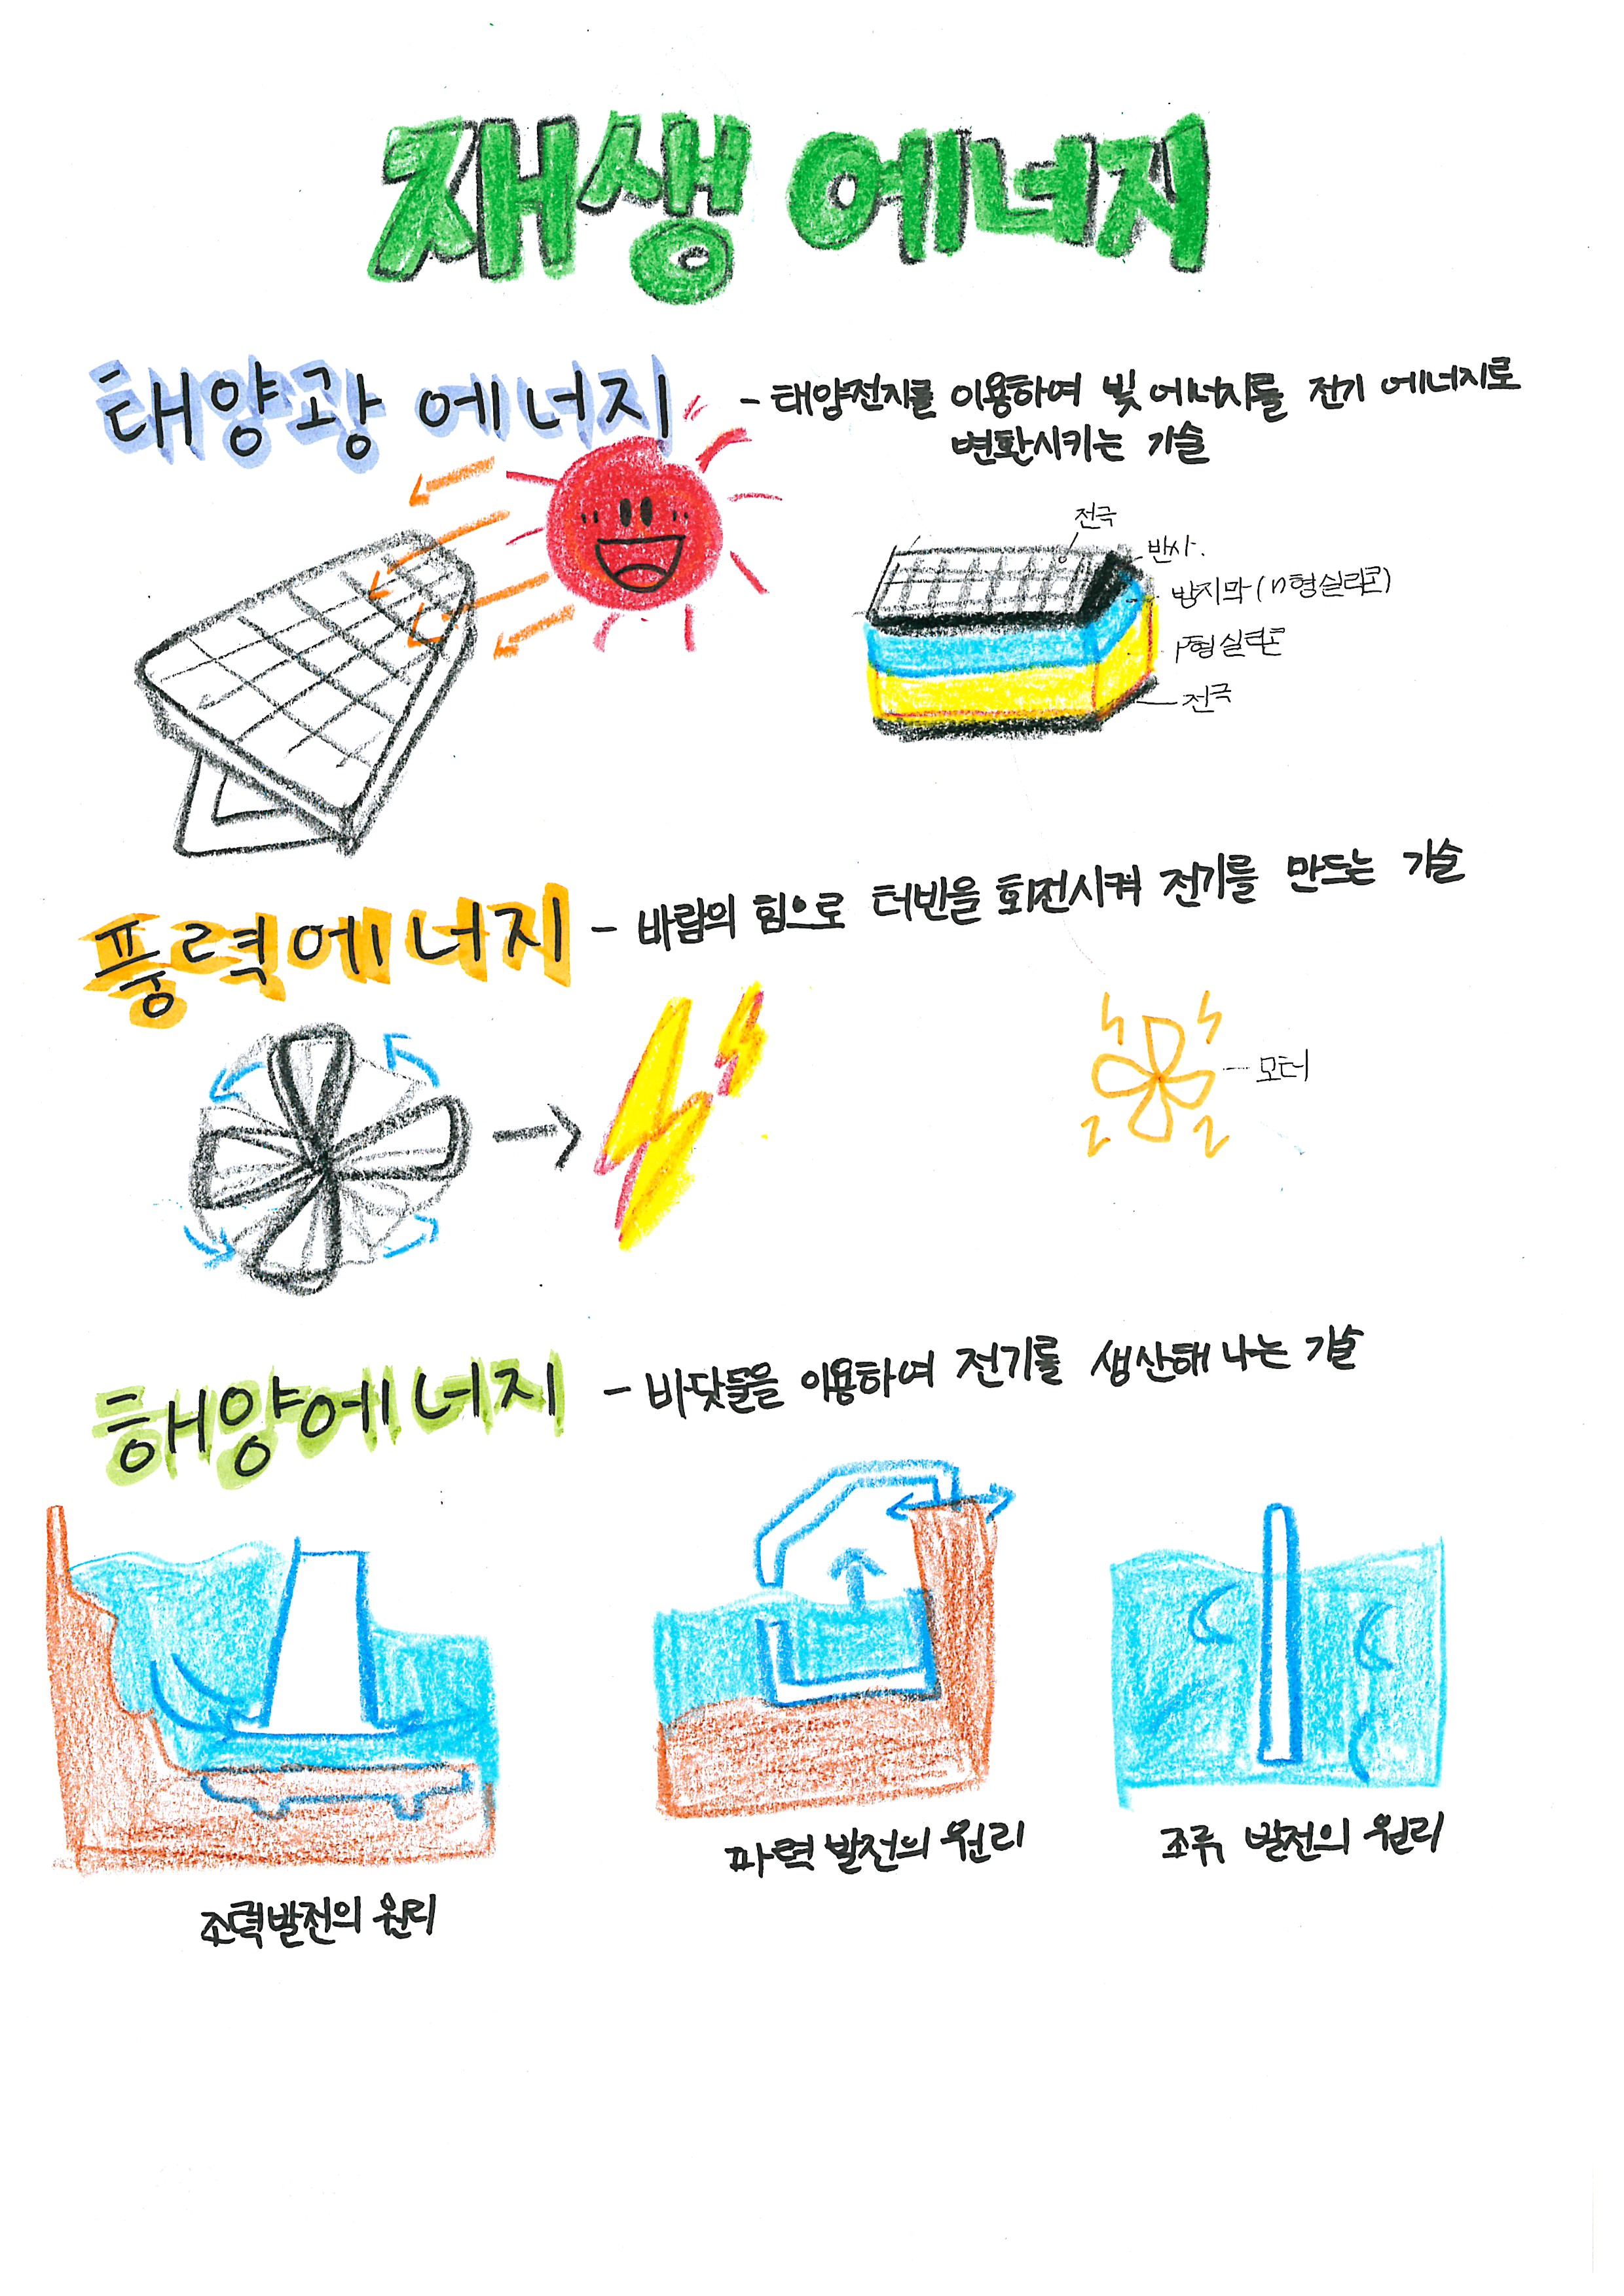 재생 에너지
태양광 에너지
- 태양전지를 이용하여 빛 에너지를 전기 에너지로
변환시키는 기술
전극
반사.
방지막 (n형실리콘)
p형 실리콘
전극
풍력에너지
- 바람의 힘으로 터빈을 회전시켜 전기를 만드는 기술
모터
해양에너지
- 바닷물을 이용하여 전기를 생산해 나는 기술
조력발전의 원리
파력 발전의 원리
조류 발전의 원리